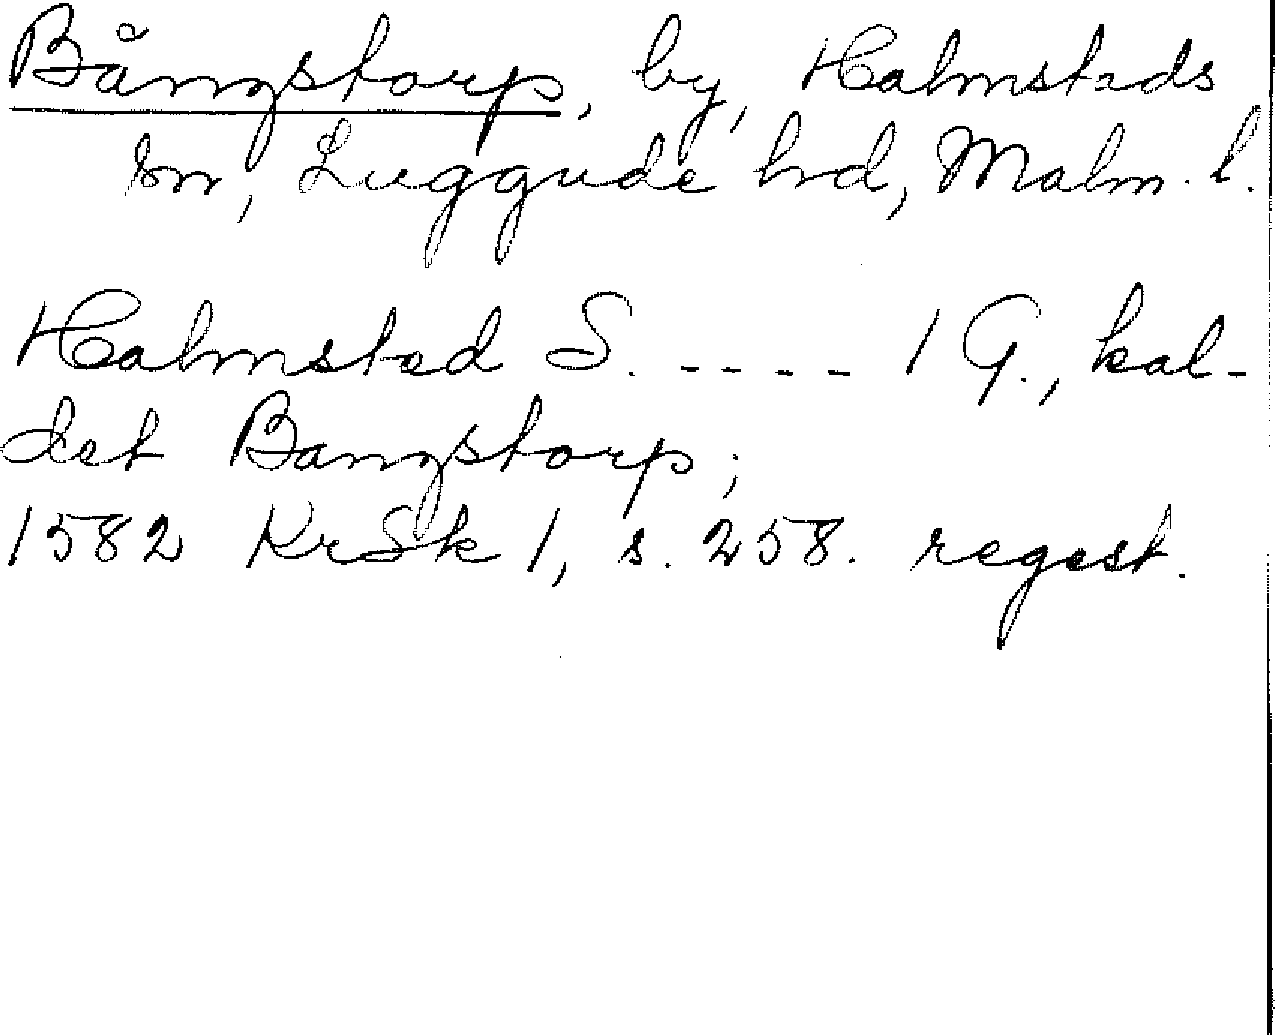 Bångstorp, by, Halmstads
sn, Luggude hrd, Malm. l.
Halmstad S. ----- 1 G., kal-
det Bangstorp;
1582 KrSk 1, s. 258. regest.